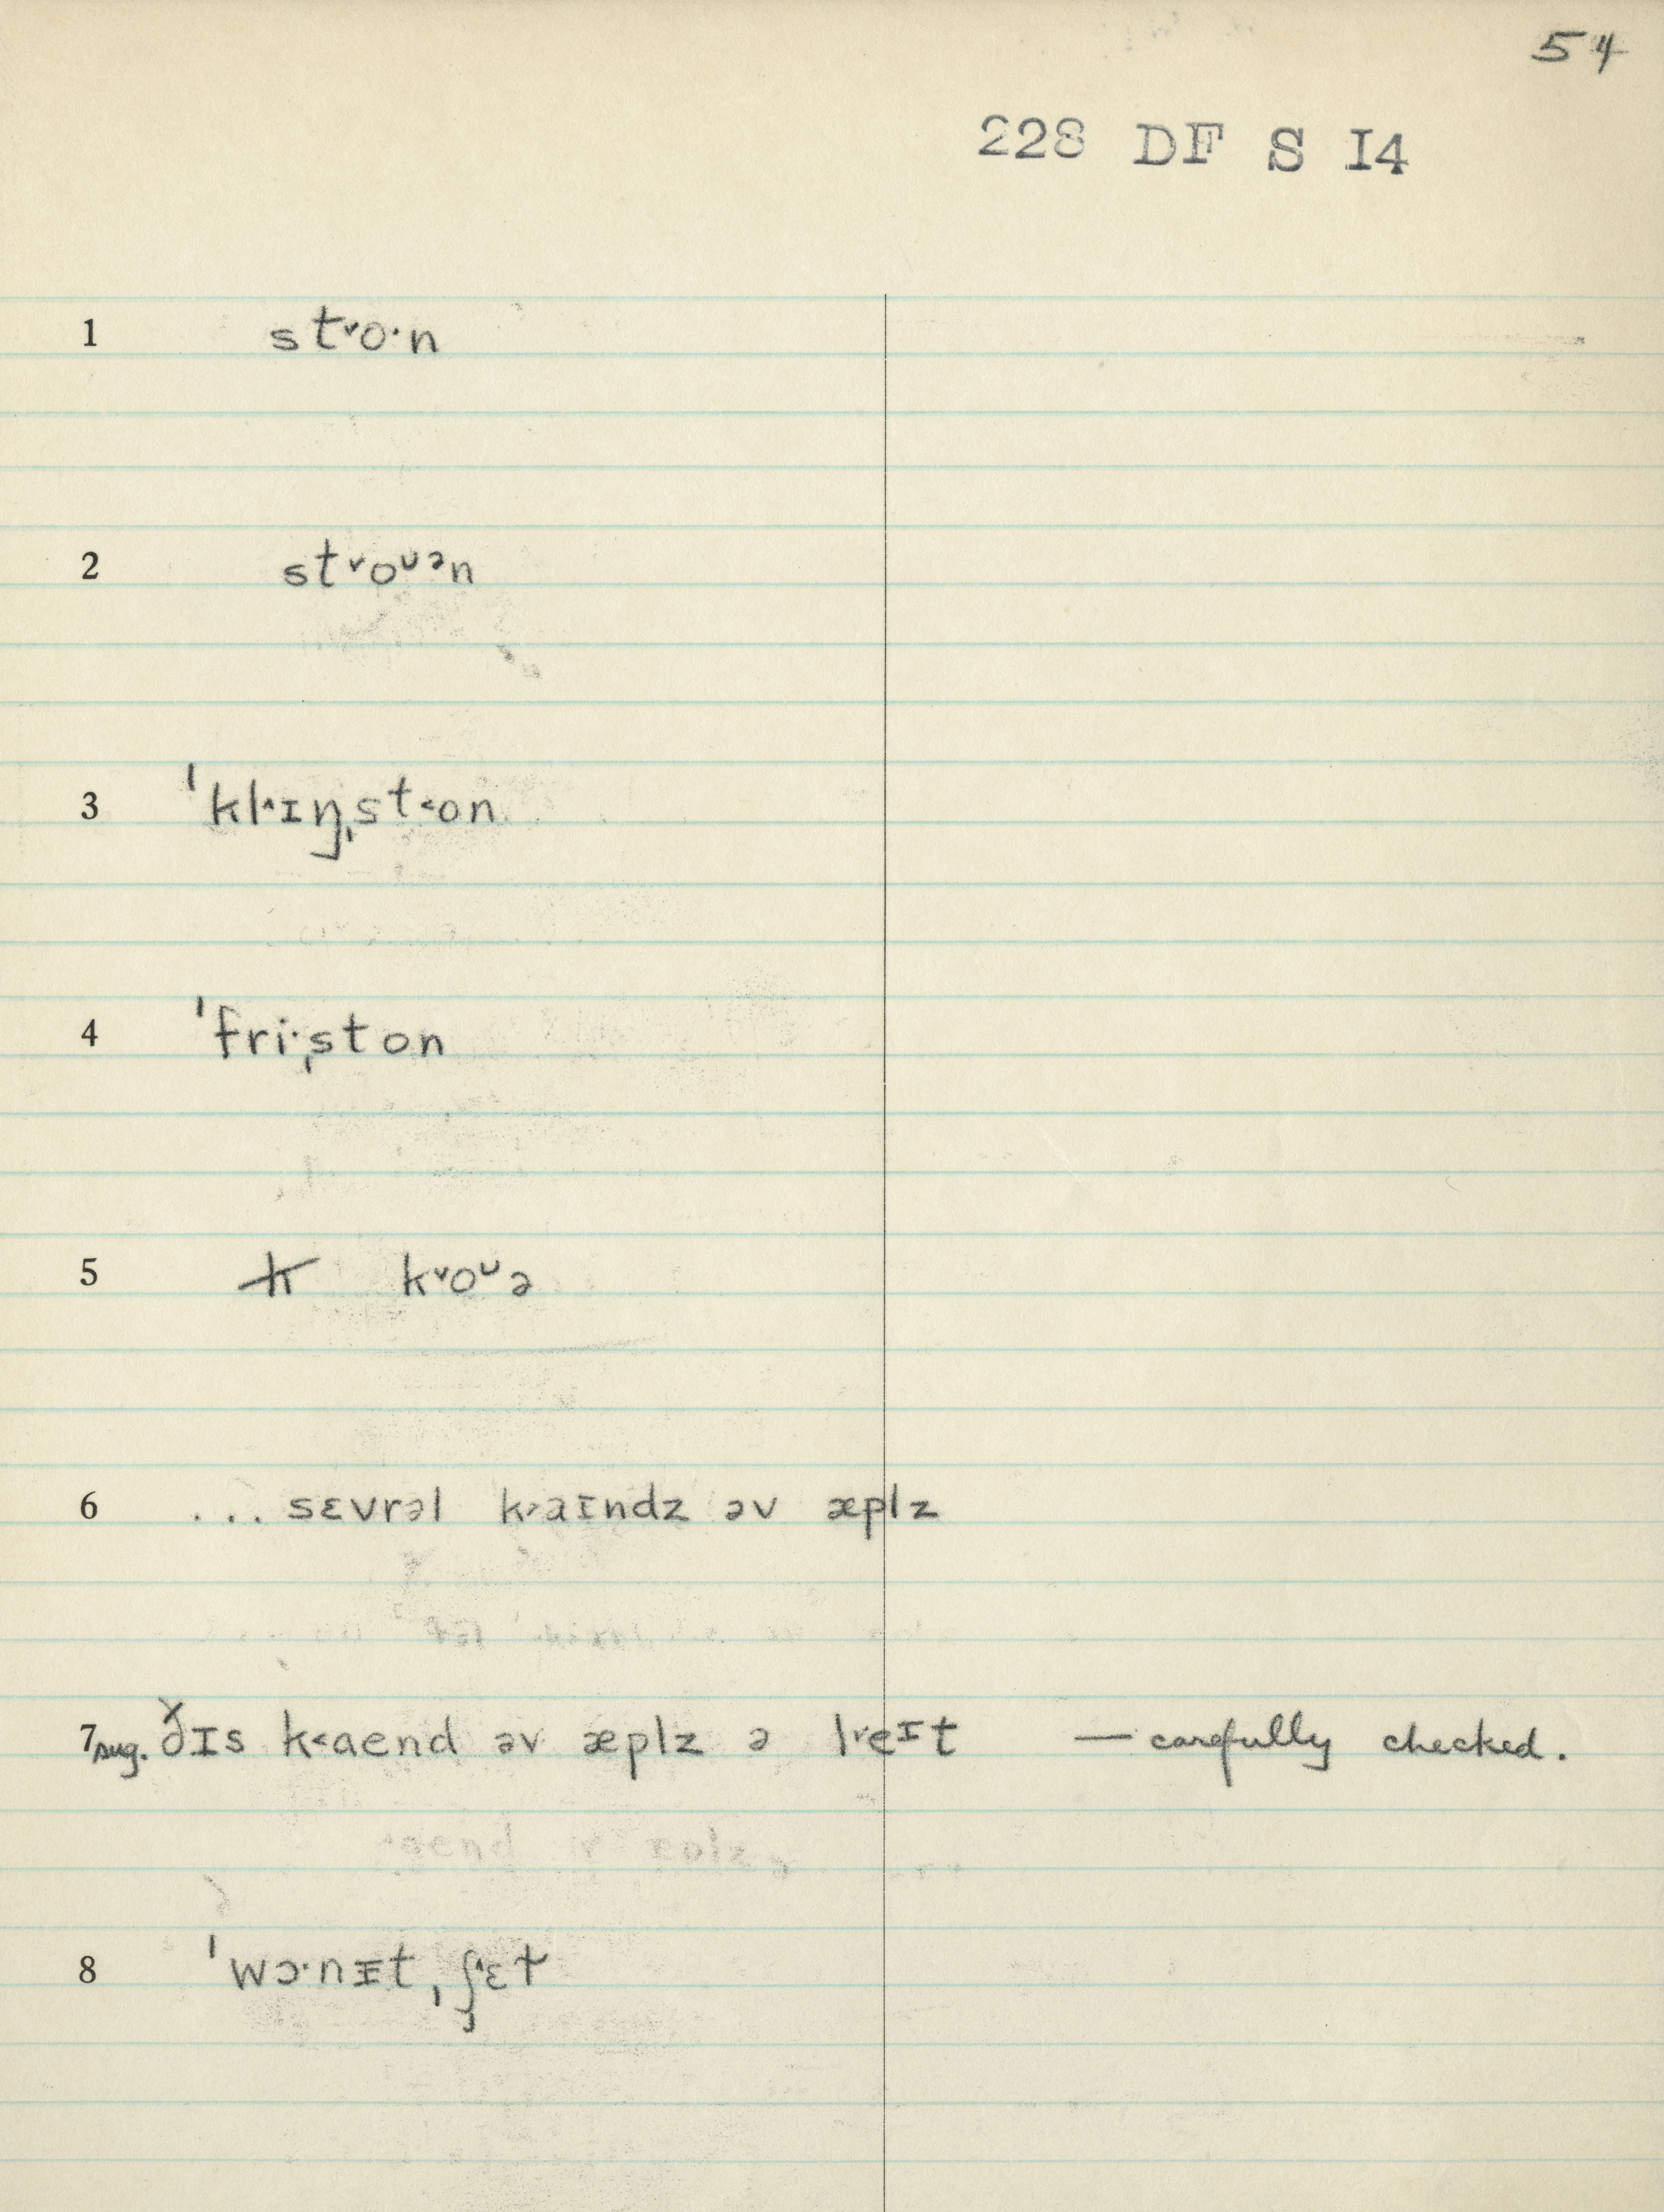 54
228 DF S I4
1 st˅o·n
2 st˅oᶷᵊn
3 ˈkl˄ɪŋˌst˂on
4 ˈfri·ˌston
5 k̶ k˅oᶷə
6 ... sɛvrəl k˃aɪndz əv æplz
7 sug. ðɪs k˂aend əv æplz ə l˅eᶦt — carefully checked.
8 ˈwɔ·nɪt ˌʃ˄ɛt